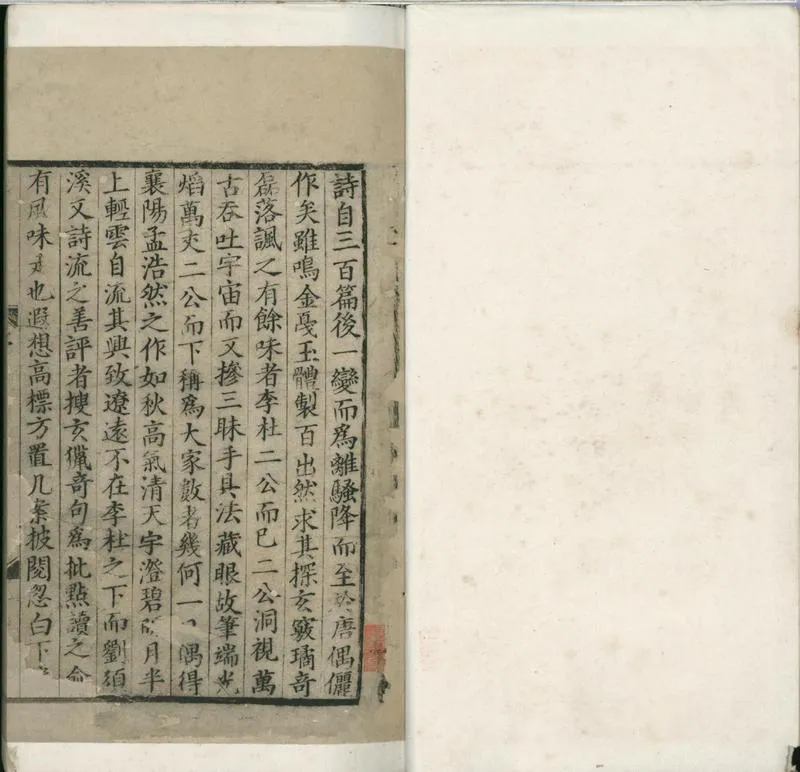 詩自三百篇後一變而爲離騷降而至於唐偶儷
作矣雖鳴金戞玉體製百出然求其探玄竅璚奇
磊落諷之有餘味者李杜二公而已二公洞視萬
古吞吐宇宙而又摻三昧手具法藏眼故筆端光
焰萬丈二公而下稱爲大家數者幾何一日偶得
襄陽孟浩然之作如秋高氣清天宇澄碧月半
上輕雲自流其興致遼遠不在李杜之下而劉須
溪又詩流之善評者搜玄獵竒句爲批點讀之
有風味也遐想高標方置几案披閱忽白下